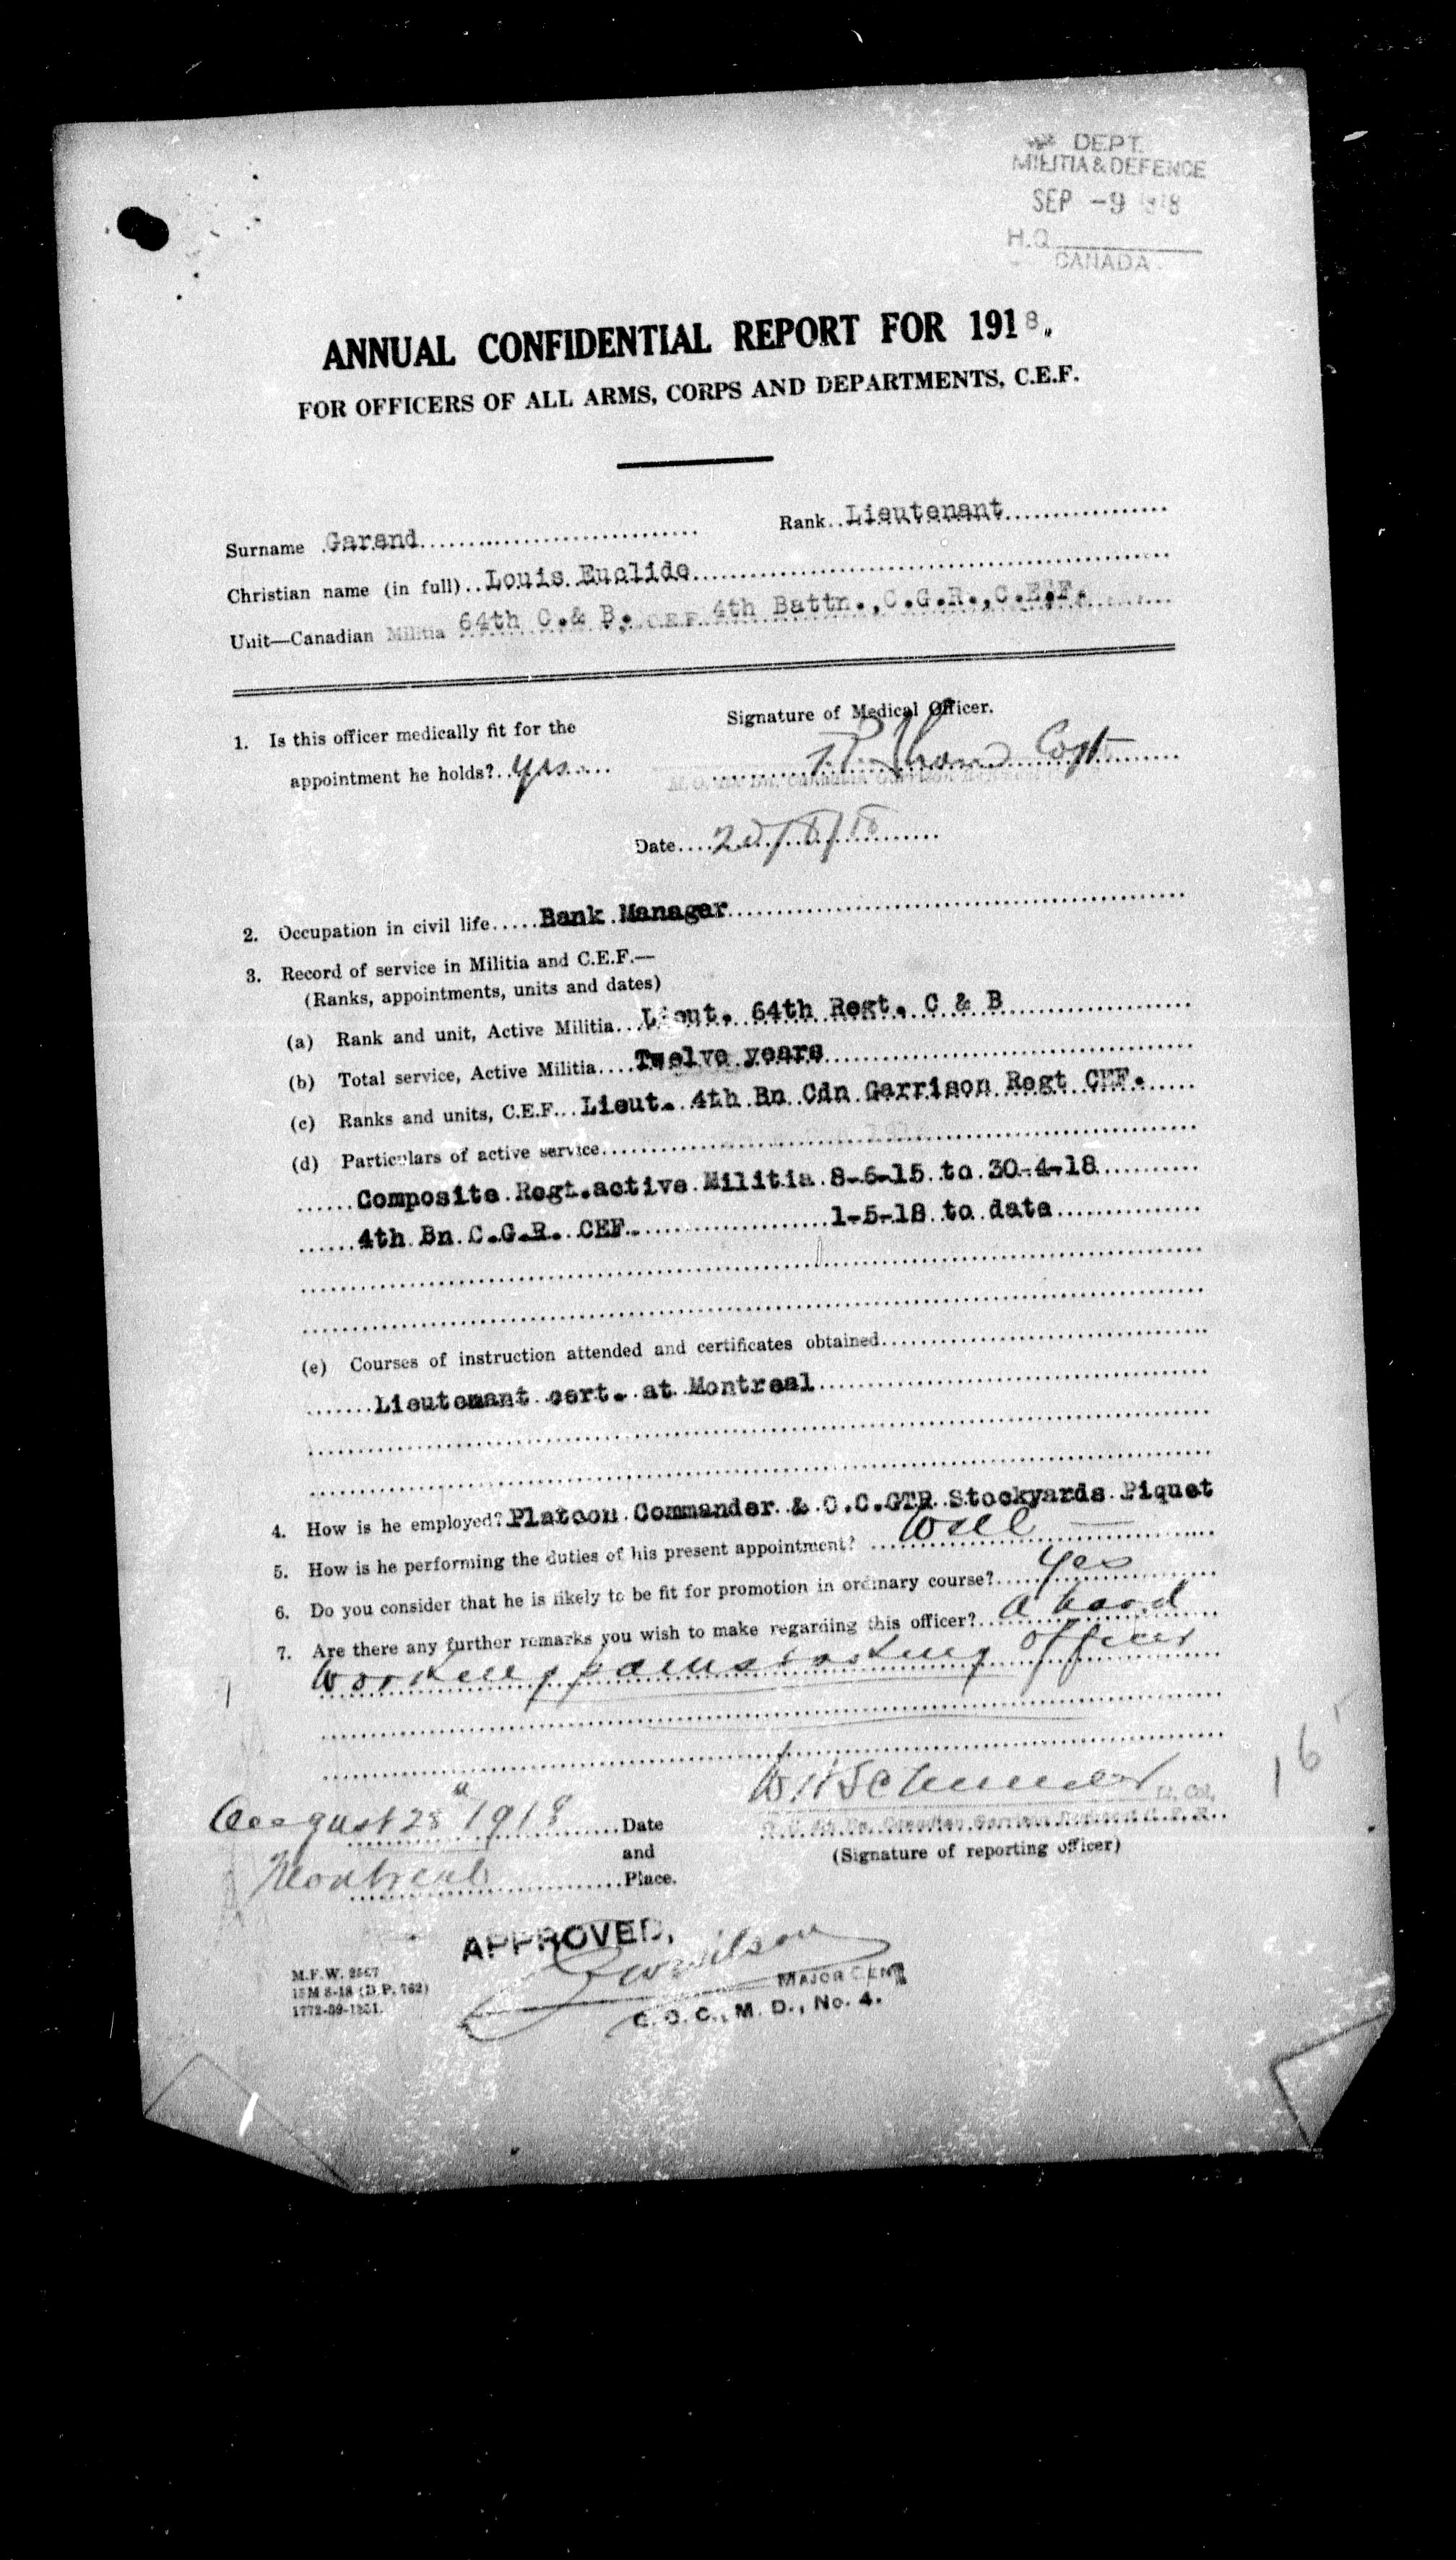 DEPT.
MILITIA & DEFENCE
SEP -9 1918
H.Q.
CANADA
ANNUAL CONFIDENTIAL REPORT FOR 1918.
FOR OFFICERS OF ALL ARMS, CORPS AND DEPARTMENTS, C.E.F.
Surname Garand Rank Lieutenant
Christian name (in full) Louis Euclide
Unit—Canadian Militia 64th C.& B. C.E.F. 4th Battn.,C.G.R.,C.E.F.
1. Is this officer medically fit for the Signature of Medical Officer.
appointment he holds? yes Capt
Date
2. Occupation in civil life Bank Manager
3. Record of service in Militia and C.E.F.—
(Ranks, appointments, units and dates)
(a) Rank and unit, Active Militia Lieut. 64th Regt. C & B
(b) Total service, Active Militia Twelve years
(c) Ranks and units, C.E.F. Lieut. 4th Bn Cdn Garrison Regt CEF.
(d) Particulars of active service
Composite Regt.active Militia 8-6-15 to 30-4-18
4th Bn C.G.R. CEF. 1-5-18 to date
(e) Courses of instruction attended and certificates obtained
Lieutenant cert. at Montreal
4. How is he employed? Platoon Commander & O.C.GTR Stockyards Piquet
5. How is he performing the duties of his present appointment? Well
6. Do you consider that he is likely to be fit for promotion in ordinary course? Yes
7. Are there any further remarks you wish to make regarding this officer? A hard
working painstaking officer
16
August 28th 1918 Date Lt. Col.
and (Signature of reporting officer)
Montreal Place.
APPROVED,
Wilson
MAJOR GEN
G. O. C., M. D., No. 4.
M.F.W. 2567
15M 8-18 (D.P. 762)
1772-39-1251.